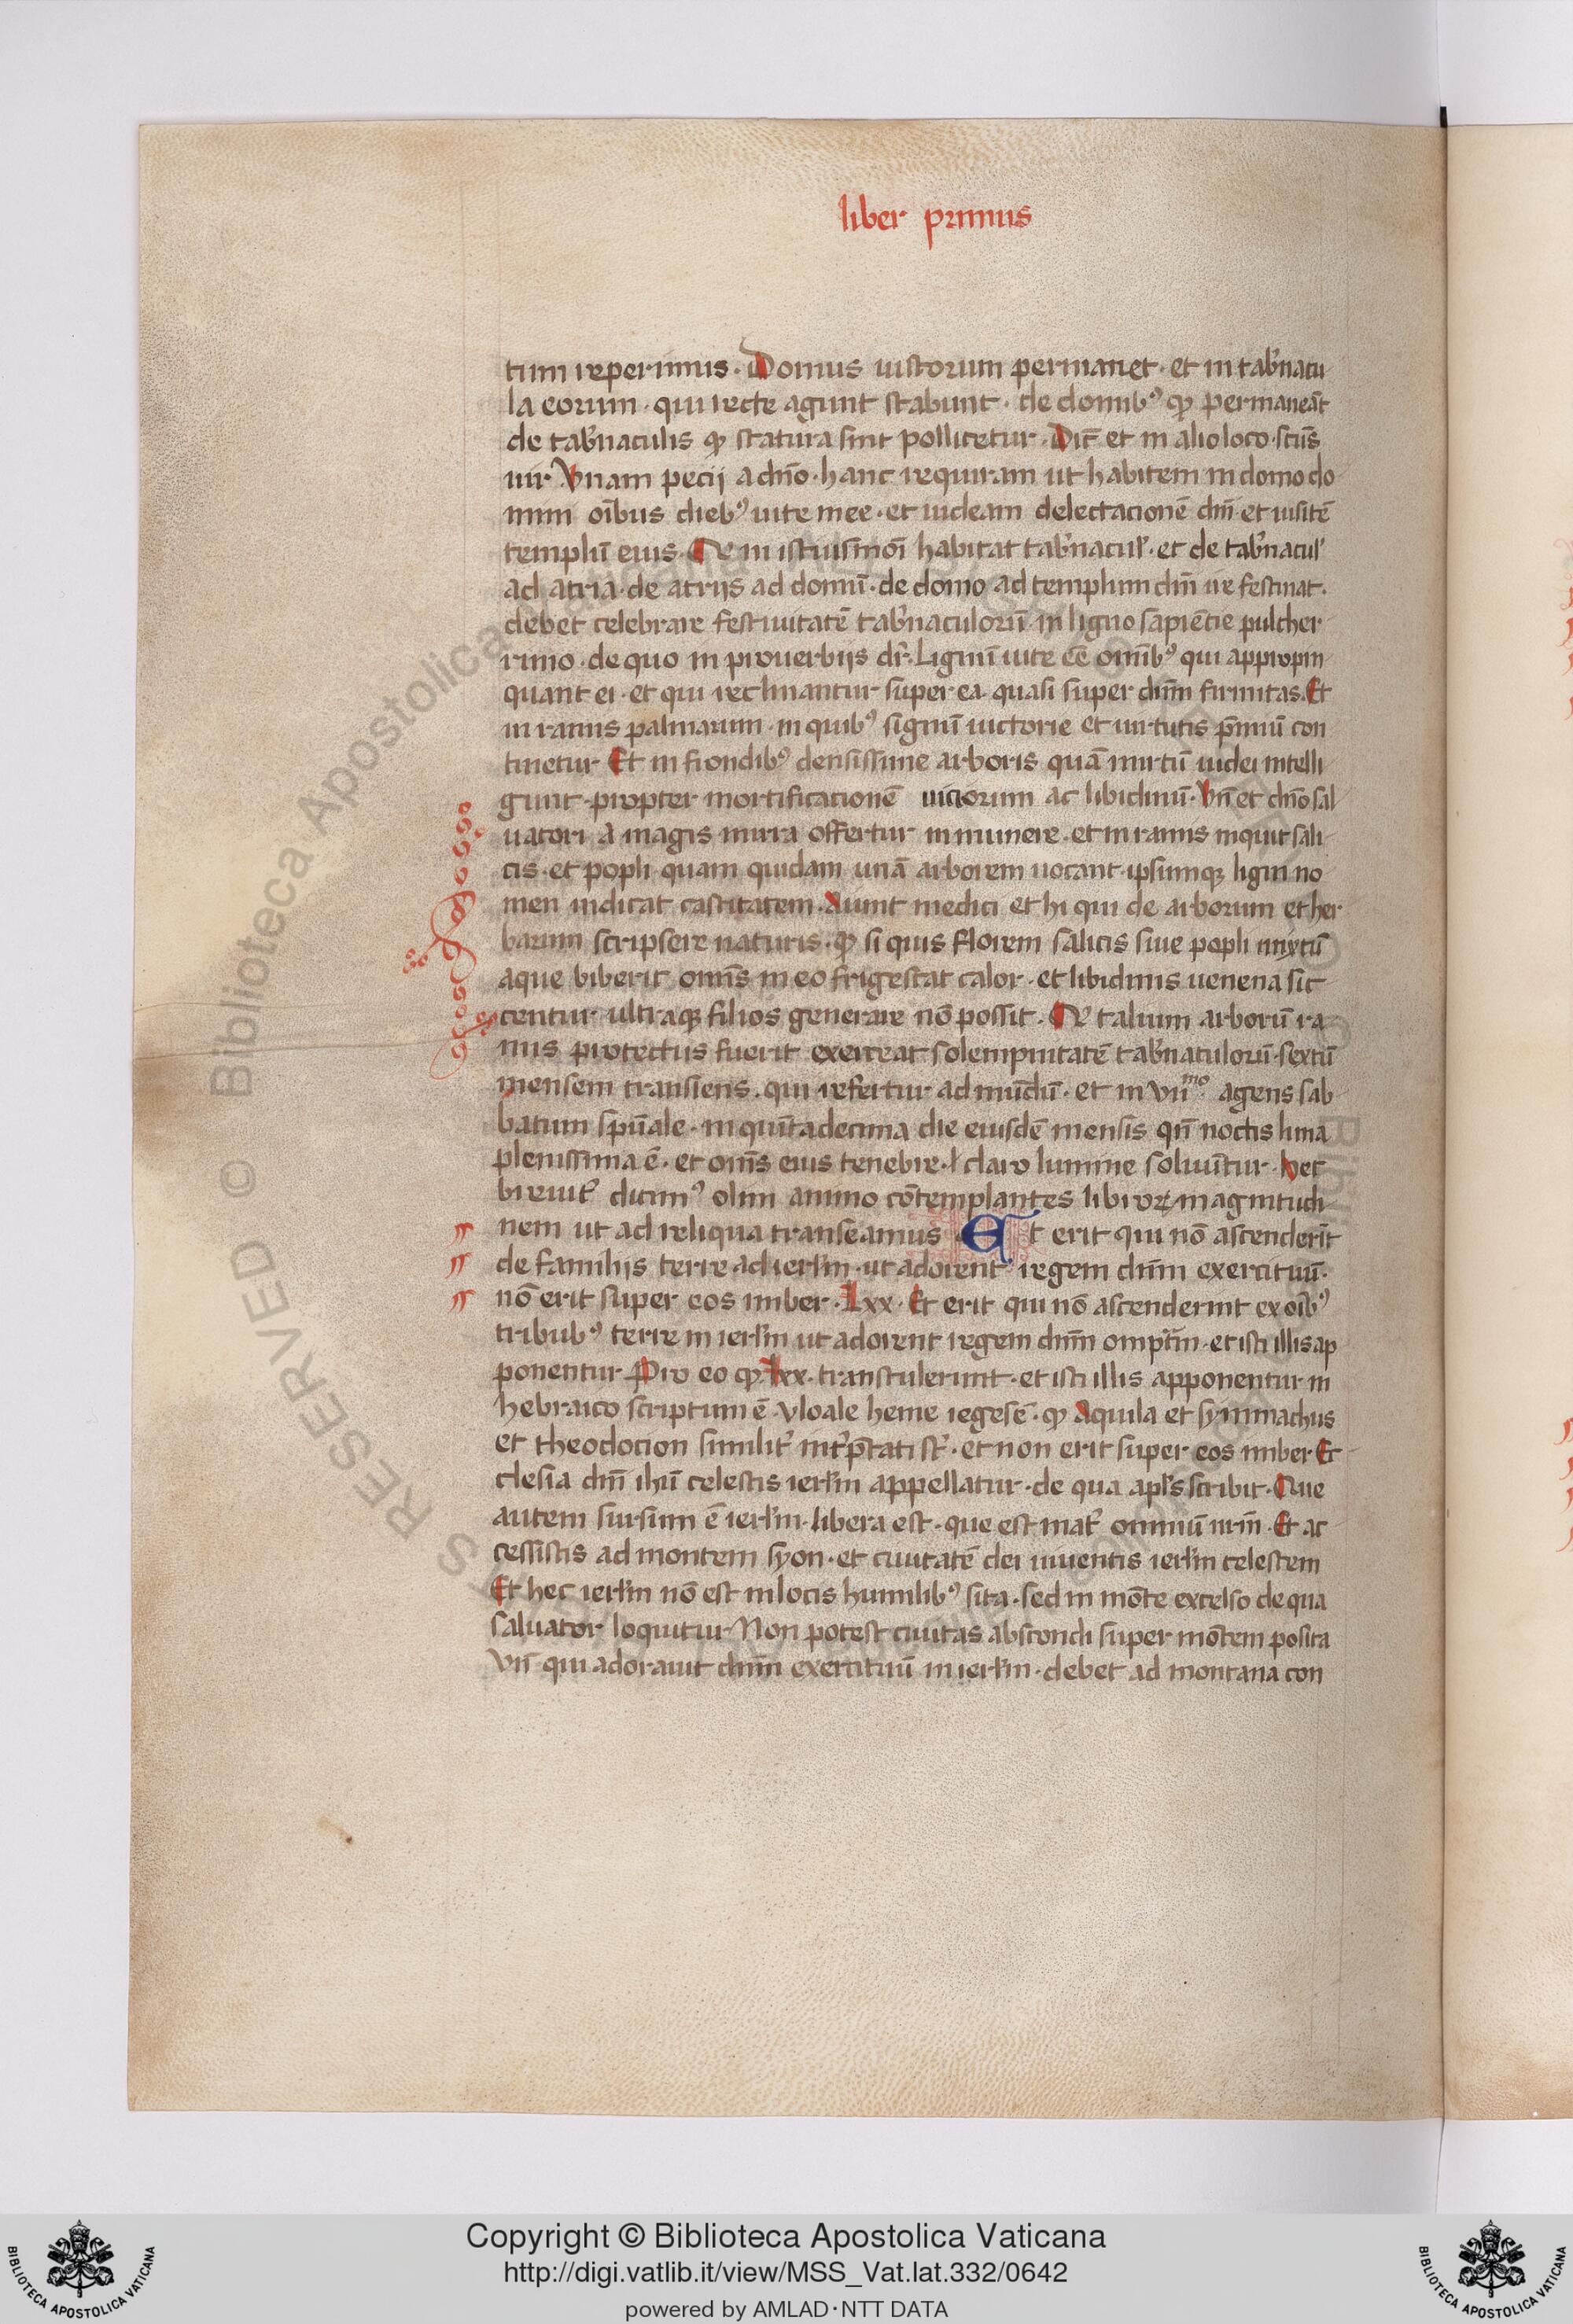 liber primus
tum reperimus. Domus iustorum permanet. et in tab̄nacu
la eorum. qui recte agunt stabunt. de domib⁹ qꝫ permaneāt
de tab̄naculis qꝫ statura sint pollicetur. Dic̄ et in alio loco. scūs
uir Vnam pecij a dn̄o. hanc requiram ut habitem in domo do
mini oībus dieb⁹ uite mee. et uideam delectacionē dn̄i et uisitē
templū eius. Qͥ in istiusmōi habitat tab̄nacul̄. et de tab̄nacul̄
ad atria. de atrijs ad domū. de domo ad templum dn̄i ire festinat.
debet celebrare festiuitatē tab̄naculorū in ligno sapiētie pulcher
rimo. de quo in prouerbijs dr̄. Lignū uite ēē omīb⁹ qui appropin
quant ei. et qui reclinantur super ea. quasi super dn̄m firmitas. Et
in ramis palmarum. in quib⁹ signū uictorie et uirtutis p̄miū con
tinetur Et in frondib⁹ densissime arboris quā mirtū iudei intelli
gunt. propter mortificacionē uiciorum ac libidinū. Vn̄ et dn̄o sal
uatori a magis mirra offertur in munere. et in ramis inquit sali
cis. et popli quam quidam unā arborem uocant. ipsumqꝫ ligni no
men indicat castitatem. Aiunt medici et hi qui de arborum et her
barum scripsere naturis. qꝫ si quis florem salicis siue popli mixtū
aque biberit omīs in eo frigescat calor. et libidinis uenena sic
centur ultraqꝫ filios generare nō possit. Qͥ talium arborū ra
mis protectus fuerit exerceat solempnitatē tab̄naculorū. sextū
mensem transiens. qui refertur ad mūdū. et in vii.ᵐᵒ agens sab
batum sp̄uale. in quītadecima die eiusdē mensis qn̄ noctis luna
plenissima ē. et om̄s eius tenebre. ł claro lumine soluūtur. hec
breuit̄ dicim⁹ olim animo cōtemplantes libroꝝ magnitudi
nem ut ad reliqua transeamus Et erit qui nō ascenderīt
de familijs terre ad ierl̄m. ut adorent regem dn̄m exercituū.
nō erit super eos imber. Lxx. Et erit qui nō ascenderint ex oīb⁹
tribub⁹ terre in ierl̄m ut adorent regem dn̄m omp̄tm̄. et isti illis ap
ponentur Pro eo qꝫ Lxx. transtulerunt. et isti illis apponentur in
hebraico scriptum ē vloale heme iegesē. qꝫ Aquila et symmachus
et theodocion similit̄ int̄p̄tati st̄. et non erit super eos imber Ec
clesia dn̄i ihū celestis ierl̄m appellatur. de qua apl̄s scribit. Que
autem sursum ē ierl̄m. libera est. que est mat̄ omniū nr̄m̄. Et ac
cessistis ad montem syon. et ciuitatē dei uiuentis ierl̄m celestem
Et hec ierl̄m nō est in locis humilib⁹ sita. sed in mōte excelso de qua
saluator loquitur Non potest ciuitas abscondi super mōtem posita
Vn̄ qui adorauit dn̄m exercituū in ierl̄m. debet ad montana con
Copyright © Biblioteca Apostolica Vaticana
http://digi.vatlib.it/view/MSS_Vat.lat.332/0642
powered by AMLAD·NTT DATA